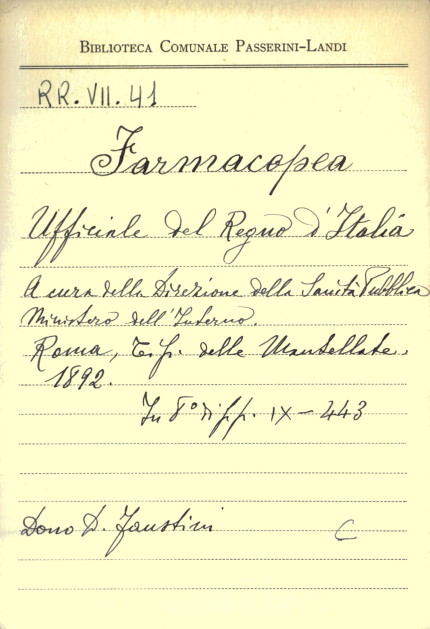 BIBLIOTECA COMUNALE PASSERINI-LANDI
RR. VII. 41
Farmacopea
Ufficiale del Regno d'Italia
A cura della Direzione della Sanità Pubblica
Ministero dell'Interno.
Roma, Tip. delle Mantellate.
1892.
In 8° di pp. IX - 443
Dono D. Faustini
C